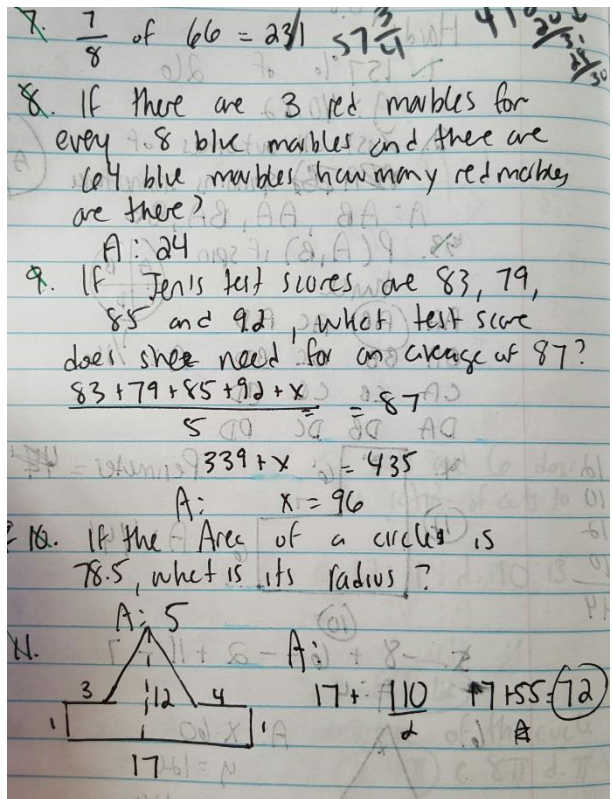 7. 7/8 of 66 = 231 57 3/4
8. If there are 3 red marbles for
every 8 blue marbles and there are
64 blue marbles how many red marbles
are there?
A: 24
9. If Jen's test scores are 83, 79,
85 and 92, what test score
does shee need for an average of 87?
83+79+85+92+x
= 87
5
339 + x = 435
A: x = 96
10. If the Area of a circle's is
78.5, what is its radius?
A: 5
11. A:
3 12 4 17 + 110/2 17+55=72
1 1
17